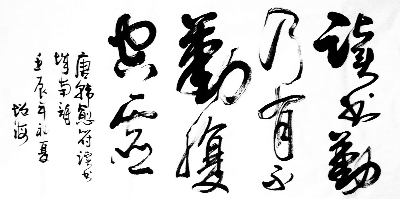 读书勤
乃有不
勤腹
空虚
唐韩愈符读书
城南诗
壬辰年初夏
海